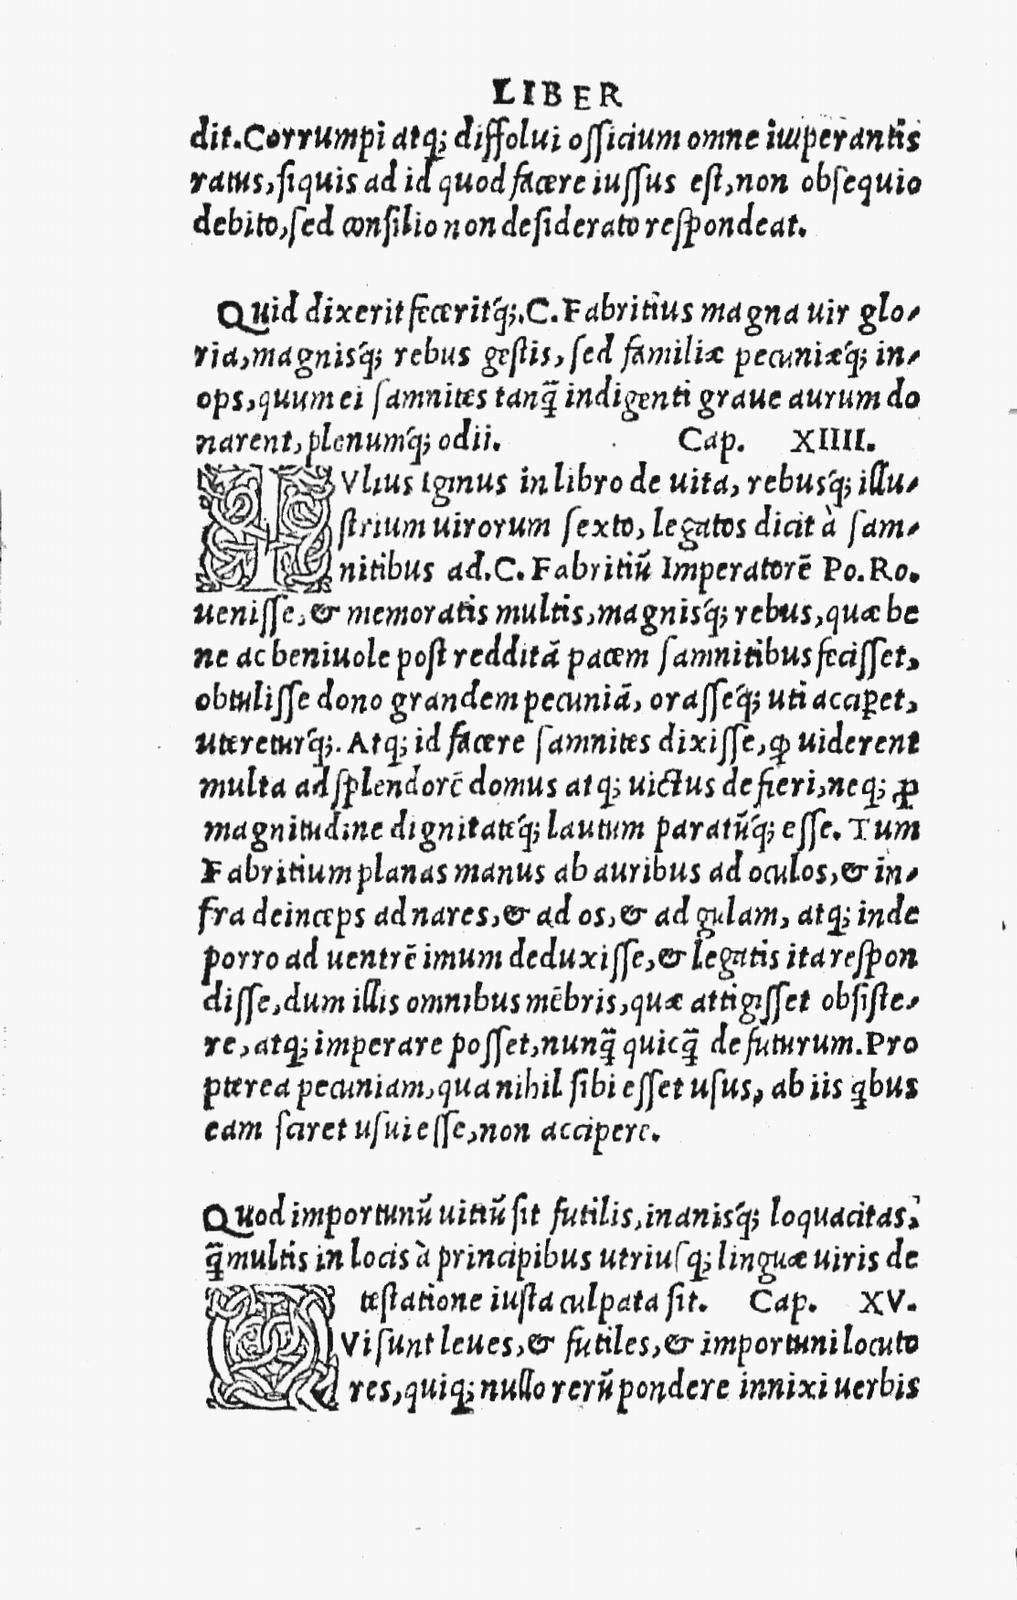 LIBER
dit. Corrumpi atq; dissolui officium omne imperantis
ratus, si quis ad id quod facere iussus est, non obsequio
debito, sed consilio non desiderato respondeat.
Quid dixerit feceritq́;. C. Fabritius magna uir glo-
ria, magnisq́; rebus gestis, sed familiæ pecuniæq́; in-
ops, quum ei samnites tanq̃ indigenti graue aurum do
narent, plenumq́; odii. Cap. XIIII.
IVlius Iginus in libro de uita, rebusq́; illu-
strium uirorum sexto, legatos dicit à sam-
nitibus ad. C. Fabritiũ Imperatorẽ Po. Ro.
uenisse, & memoratis multis, magnisq́; rebus, quæ be
ne ac beniuole post redditã pacem samnitibus fecisset,
obtulisse dono grandem pecuniã, orasseq́; uti acciꝑet,
utereturq́;. Atq; id facere samnites dixisse, ꝙ uiderent
multa ad splendorẽ domus atq; uictus defieri, neq; ꝓ
magnitudine dignitateq́; lautum paratũq́; esse. Tum
Fabritium planas manus ab auribus ad oculos, & in-
fra deinceps ad nares, & ad os, & ad gulam, atq; inde
porro ad uentrẽ imum deduxisse, & legatis ita respon
disse, dum illis omnibus mẽbris, quæ attigisset obsiste-
re, atq; imperare posset, nunq̃ quicq̃ defuturum. Pro
pterea pecuniam, qua nihil sibi esset usus, ab iis qbus
eam sciret usui esse, non accipere.
Quod importunũ uitiũ sit futilis, inanisq́; loquacitas,
q̃ multis in locis à principibus utriusq; linguæ uiris de
testatione iusta culpata sit. Cap. XV.
QVi sunt leues, & futiles, & importuni locuto
res, quiq; nullo rerũ pondere innixi uerbis